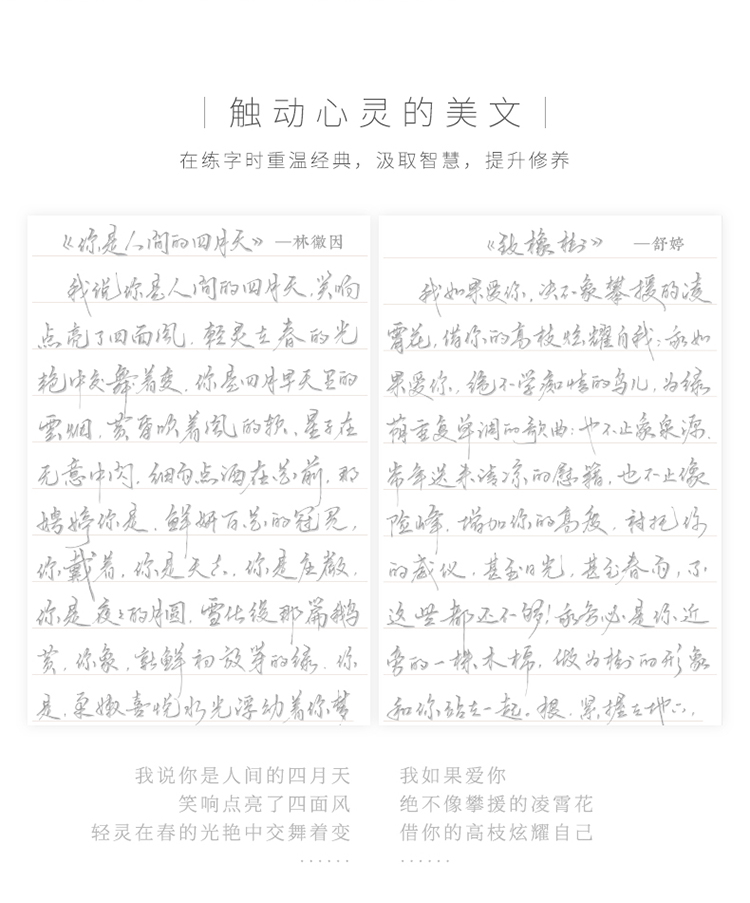 触动心灵的美文
在练字时重温经典，汲取智慧，提升修养
《你是人间的四月天》—林徽因
我说你是人间的四月天，笑响
点亮了四面风，轻灵在春的光
艳中交舞着变，你是四月早天里的
云烟，黄昏吹着风的软，星子在
无意中闪，细雨点洒在花前，那
娉婷你是，鲜妍百花的冠冕，
你戴着，你是天真，庄严，
你是夜夜的月圆，雪化后那篇鹅
黄，你象，新鲜初放芽的绿，你
是，柔嫩喜悦水光浮动着你梦
《致橡树》 —舒婷
我如果爱你，决不象攀援的凌
霄花，借你的高枝炫耀自我；我如
果爱你，绝不学痴情的鸟儿，为绿
荫重复单调的歌曲；也不止象泉源，
常年送来清凉的慰籍，也不止像
险峰，增加你的高度，衬托你
的威仪，甚至日光，甚至春雨，不
这些都还不够！我必须是你近
旁的一株木棉，做为树的形象
和你站在一起。根，紧握在地下，
我说你是人间的四月天
笑响点亮了四面风
轻灵在春的光艳中交舞着变
······
我如果爱你
绝不像攀援的凌霄花
借你的高枝炫耀自己
······